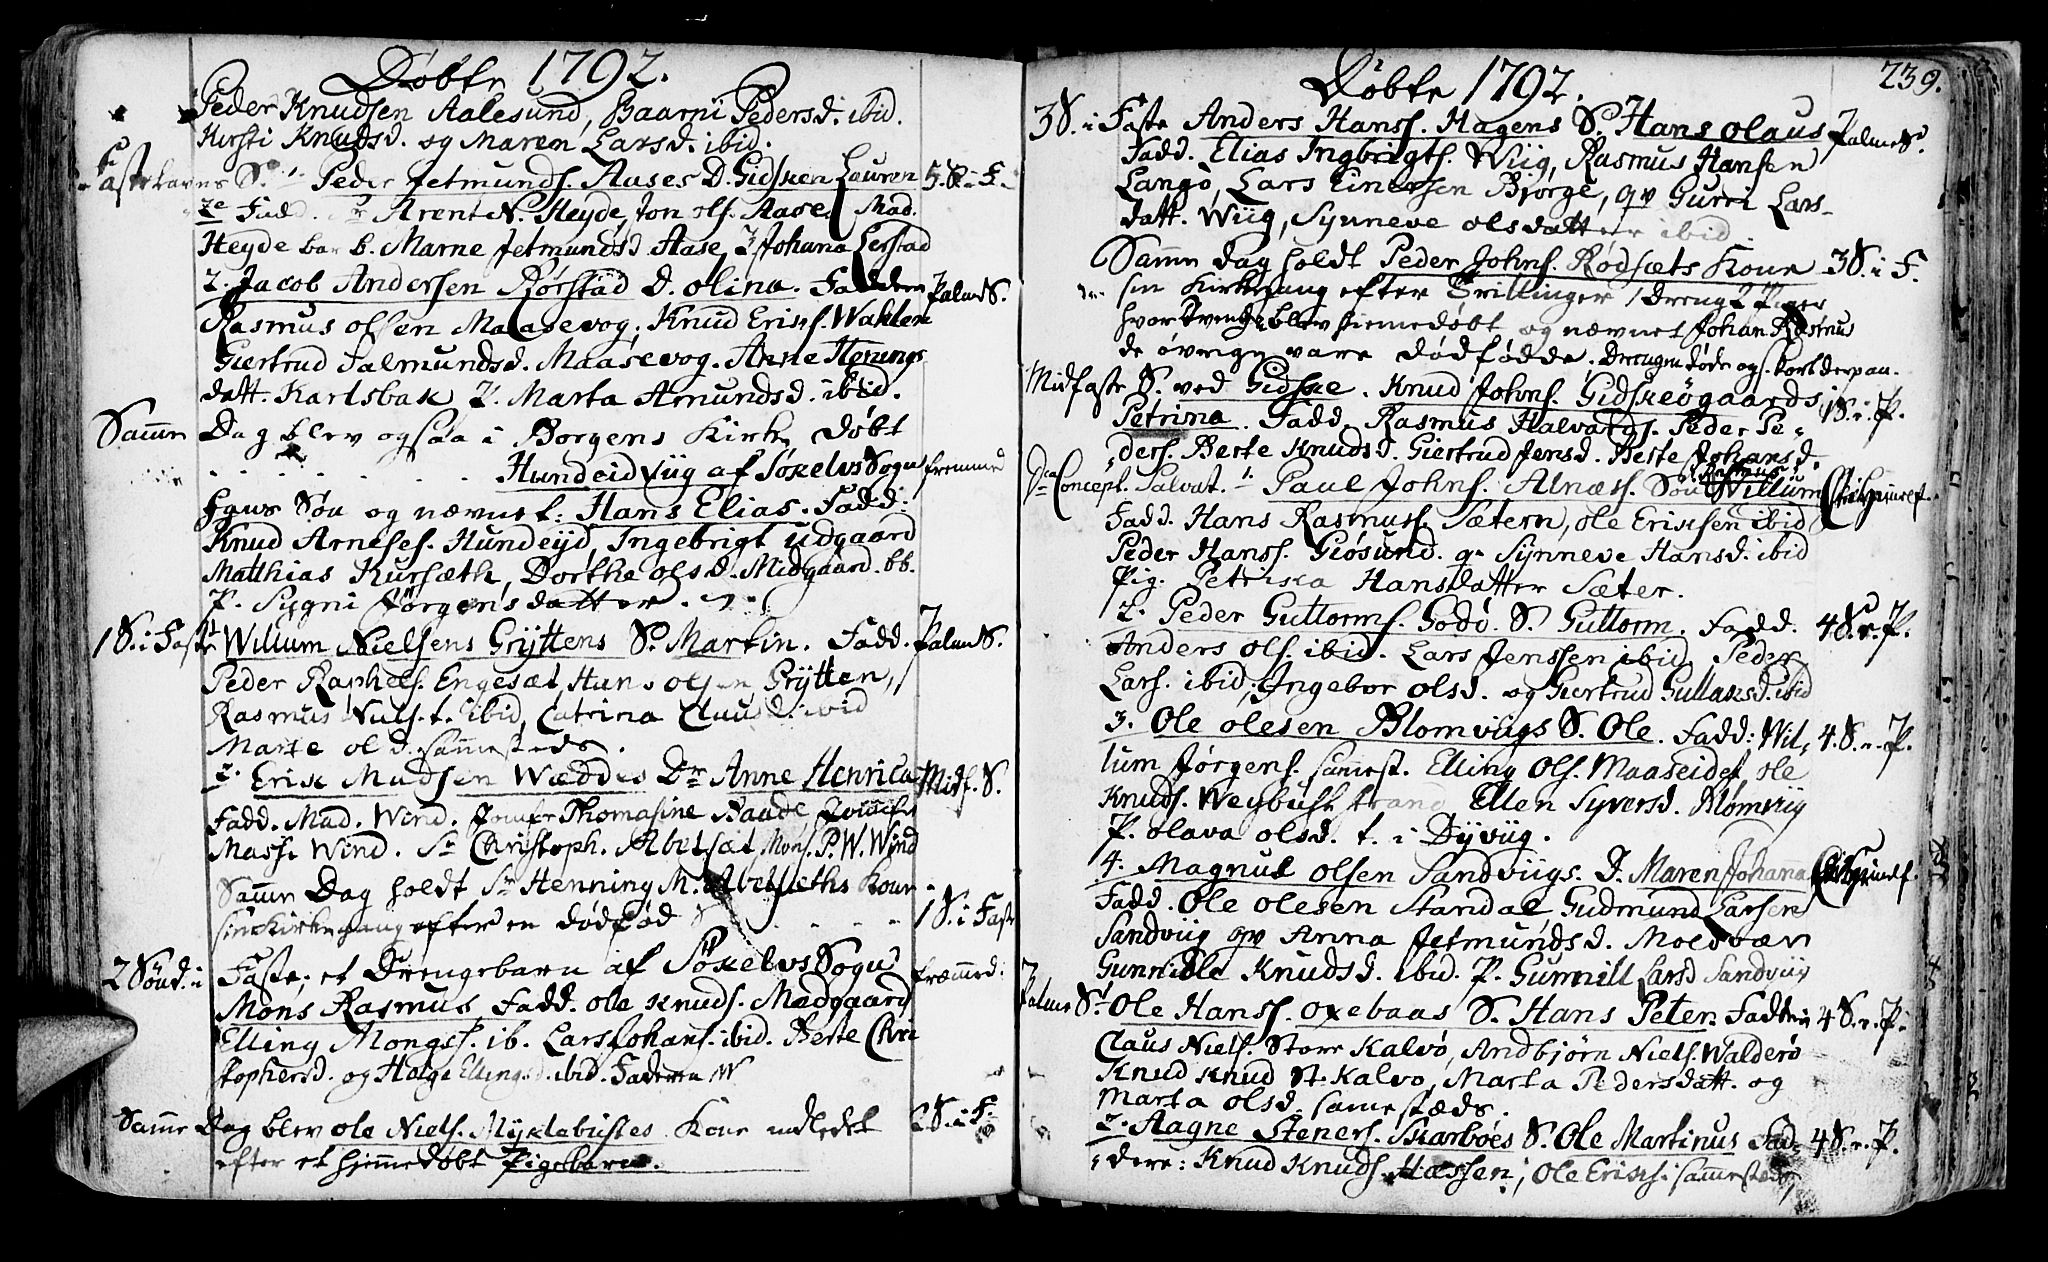 Døbte 1792.
Peder Knudsen Aalesund, Baarni Pedersd. ibid.
Kirsti Knudsd. og Maren Larsd. ibid.
Fastelavns S. 1. Peder Jetmunds. Aases D. Gidsken Lauren 5 S. i F.
ze Fadd. Sr Arent N. Heyde, Jon Ols. Aase, Mad.
Heyde bar b. Marne Jetmundsd Aase, J. Johana Lerstad
2. Jacob Andersen Rørstad D. Olina. Faddere Palm S.
Rasmus Olsen Maasevog. Knud Eriks. Wahlen
Giertrud Salmundsd. Maasevog. Anne Henings
datt. Karlsbak P. Marta Amundsd. ibid.
Samme Dag blev ogsaa i Borgens Kirke døbt
Hundeidviig af Søkelvs Sogn fremmed
Hans Søn og nævnet: Hans Elias. Fadd:
Knud Arneses. Hundeyd, Ingebrigt udgaard
Matthias Kursæth, Dorthe Olsd. Midgaard. bb.
P. Sygni Jørgensdatter.
1 S. i Faste 1 Willum Nielsens Grÿttens S. Martin. Fadd. Palm S.
Peder Raphels. Engesæt, Hans Olsen Grÿtten,
Rasmus Niels. t. ibid, Catrina Clausd. ibid
Marte Ols d. sammesteds.
2. Erik Madsen Wæddes Dr Anne Henrica Midf. S.
Fadd. Mad. Wind. Jomfr Thomasine Baade Jomfr
Massi Wind. Sr Christoph. Abelsæt Mons. P. W. Wind
Samme Dag holdt Sr Henning M. Abelsæths Kone
sin Kirkegang efter en dødfød 1 S. i Faste
2 Sønd. i Faste, et Drengebarn af Søkelvs Sogn fræmmed:
Mons Rasmus, Fadd. Ole Knuds. Midgaard
Elling Mongs. ib. Lars Johans. ibid. Berte Chri
stophersd. og Helge Ellingsd. ibid. Faderen W
Samme Dag blev Ole Niels. Mÿklebustes Kone indledet 2 S. i F.
efter et hjemmedøbt Pigebarn.
Døbte 1792. 239.
3 S. i Faste Anders Hanss. Hagens S. Hans Olaus Palme S.
Fadd. Elias Ingbrigts. Wiig, Rasmus Hansen
Langø, Lars Einersen Bjørge, qv Gurri Lars-
datt. Wiig, Synneve Olsdatter ibid
Samme dag holdt Peder Johns. Rødsæts Kone 3 S. i F.
sin Kirkegang efter Trillinger 1 Dreng 2 Piger
hvor Drengen blev hiemedøbt og nævnet Johan Rasmus
de øvrige vare dødfødde. Drengen døde og. kort derpaa.
Midfaste S. ved Gidske. Knud Johns. Gidskeøgaards 1 S. e. P.
Petrina. Fadd. Rasmus Halvards. Peder Pe-
ders. Berte Knudsd. Giertrud Jensd. Berte Johansd.
Dca Concept. Salvat. 1. Paul Johns. Alness. Søn Willum Chr. Himelf.
Fadd. Hans Rasmuss. Sætern, Ole Eriksen ibid
Peder Hanss. Giøsund. qv Synneve Hansd. ibid
Pig. Petrika Hansdatter Sæter.
2. Peder Guttorms. Godø S. Guttorm. Fadd. 4 S. e. P.
Anders Ols. ibid. Lars Jenssen ibid, Peder
Lars. ibid. Ingebor Olsd. og Giertrud Gullaksd. ibid
3. Ole Olesen Blomviigs S. Ole. Fadd: Wil- 4. S. e. P.
lum Jørgens. sammest. Elling Ols. Maaseidet, Ole
Knuds. Wegbustrand Ellen Syversd. Blomviig
P. Olava Olsd. t. i Dÿviig.
4. Magnus Olsen Sandviigs. D. Maren Johanna Chr. Himelf.
Fadd. Ole Olesen Standal Gudmund Larsen
Sandviig qv Anna Jetmundsd. Moldvær
Gunnilde Knudsd. ibid. P. Gunnill Larsd Sandviig
Palme S. 1 Ole Hanss. Oxebaas S. Hans Peter. Faddere 4 S. e. P.
Claus Niels. Store Kalvø, Andbjørn Niels. Walderø
Knud Knud St. Kalvø, Marta Pedersdatt. og
Marta Olsd. samestæds.
2. Aagne Steners. Skarbøes S. Ole Martinus Fad- 4 S. e. P.
dere: Knud Knuds. Hæssen, Ole Eriks: sammesteds,